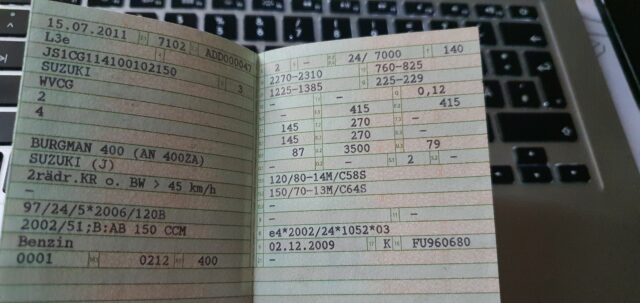 15.07.2011 7102 ADD000047
L3e
JS1CG114100102150
SUZUKI 3
WVCG
2
4
BURGMAN 400 (AN 400ZA)
SUZUKI (J)
2rädr.KR o. BW > 45 km/h
-
97/24/5*2006/120B
2002/51;B:AB 150 CCM
Benzin
0001 0212 400
2 - 24/ 7000 140
2270-2310 760-825
1225-1385 225-229
- - 0,12
- 415 415
145 270
145 270
87 3500 79
- - 2 -
120/80-14M/C58S
150/70-13M/C64S
- -
e4*2002/24*1052*03
02.12.2009 K FU960680
-